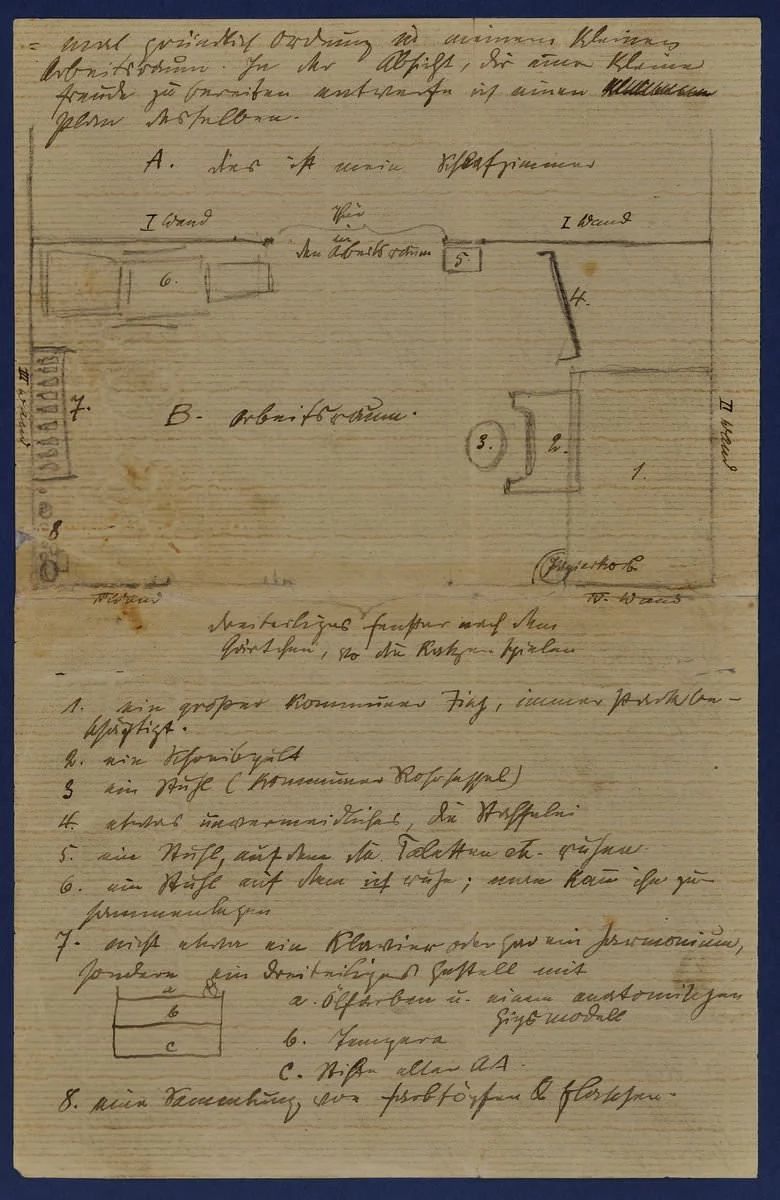 = mal gründlich Ordnung in meinem kleinen
Arbeitsraum. In der Absicht, dir eine kleine
Freude zu bereiten entwerfe ich einen
Plan desselben.
A. dies ist mein Schlafzimmer
I Wand
Tür
in
den Arbeitsraum
I Wand
5.
6.
4.
III Wand
7.
B. Arbeitsraum.
3.
2.
1.
II Wand
8
Papierkorb
IV Wand
IV. Wand
dreiteiliges Fenster nach dem
Gärtchen, wo die Katzen spielen
1. ein großer kommuner Tisch, immer stark be-
schäftigt.
2. ein Schreibpult
3 ein Stuhl (kommuner Rohrsessel)
4. etwas unvermeidliches, die Staffelei
5. ein Stuhl, auf dem die Paletten etc. ruhen.
6. ein Stuhl auf dem ich ruhe; man kann ihn zu-
sammenlegen
7. nicht etwa ein Klavier oder gar ein Harmonium,
sondern ein dreiteiliges Gestell mit
a
b
c
a. Ölfarben u. einem anatomischen
Gipsmodell
b. Tempera
c. Stifte aller Art.
8. eine Sammlung von Farbtöpfen & Flaschen.